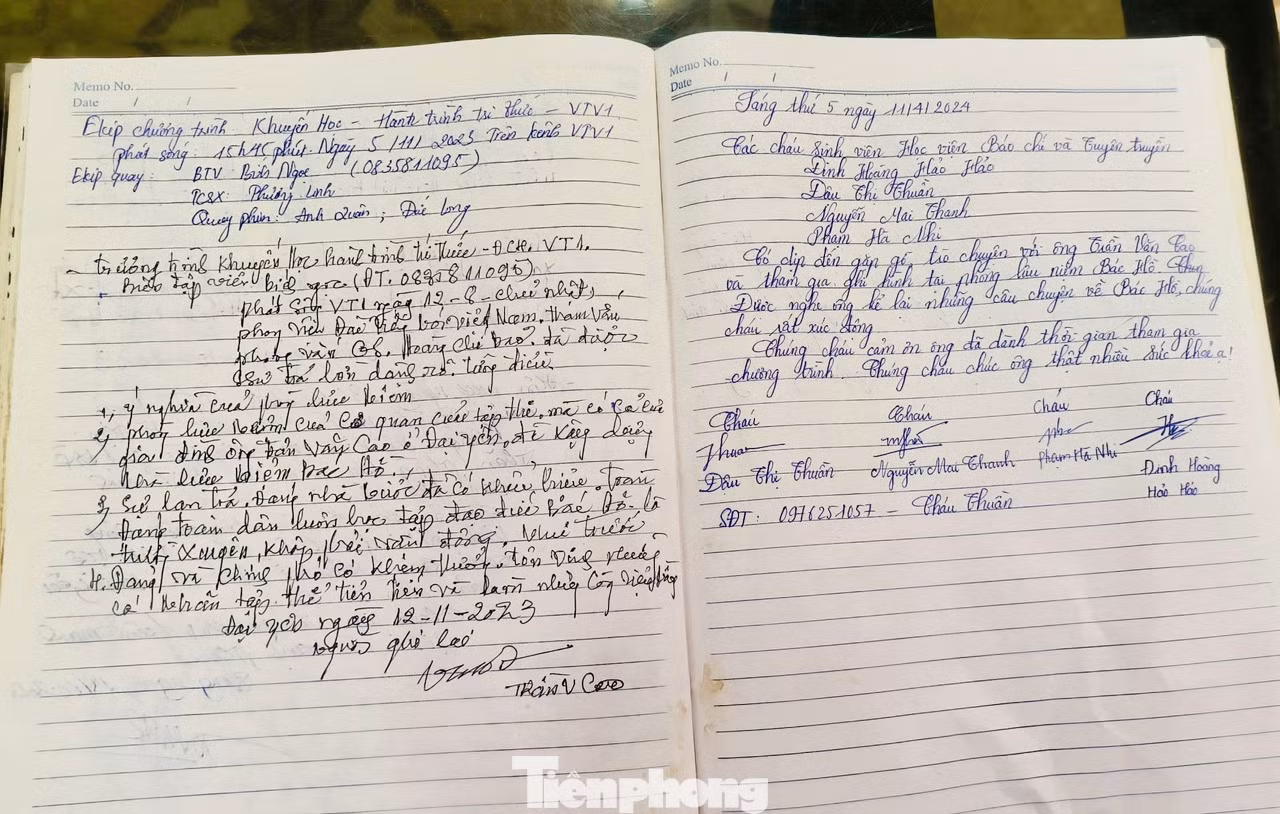 Memo No.
Date / /
Ekip chương trình Khuyến Học - Hành trình tri thức - VTV1
phát sóng: 15h45 phút. Ngày 5/11/2023 Trên kênh VTV1
Ekip quay: BTV Bích Ngọc (0835811095)
TCSX: Phương Linh
Quay phim: Anh Quân; Đức Long
trương trình Khuyến Học hành trình tri thức - VT1.
Biên tập viên bích ngọc (ĐT. 0835811095)
phát sóng VT1 ngày 12-8- chủ nhật,
phóng viên Đài tiếng nói việt Nam. tham vấn
phỏng vấn Hoàng Chí Bảo. đã được
1, ý nghĩa của phòng lưu niệm
2, phòng lưu niệm của cơ quan của tập thể. mà có cả của
gia đình ông trần Văn Cao ở Đại yên. đã xây dựng
nhà lưu niệm Bác Hồ.
3, Sự lan toả. Đảng nhà nước đã có khẩu hiệu. toàn
Đảng toàn dân luôn học tập đạo đức Bác Hồ. là
4. Đảng và Chính phủ có khen thưởng. tôn vinh những
cá nhân tập thể tiên tiến và làm những công việc
Đại yên ngày 12-11-2023
người ghi
Trần V Cao
Memo No.
Date / /
Sáng thứ 5 ngày 11/4/2024
Các cháu sinh viên Học viện Báo chí và Tuyên truyền
Đinh Hoàng Hảo Hảo
Dậu Thị Thuần
Nguyễn Mai Thanh
Phạm Hà Nhi
Có dịp đến gặp gỡ, trò chuyện với ông Trần Văn Cao
và tham gia ghi hình tại phòng lưu niệm Bác Hồ.
Được nghe ông kể lại những câu chuyện về Bác Hồ, chúng
cháu rất xúc động
Chúng cháu cảm ơn ông đã dành thời gian tham gia
chương trình. Chúng cháu chúc ông thật nhiều sức khoẻ ạ!
Cháu Cháu Cháu Cháu
Dậu Thị Thuần Nguyễn Mai Thanh Phạm Hà Nhi Đinh Hoàng
Hảo Hảo
SĐT: 0976251057 - Cháu Thuần
Tiềnphong